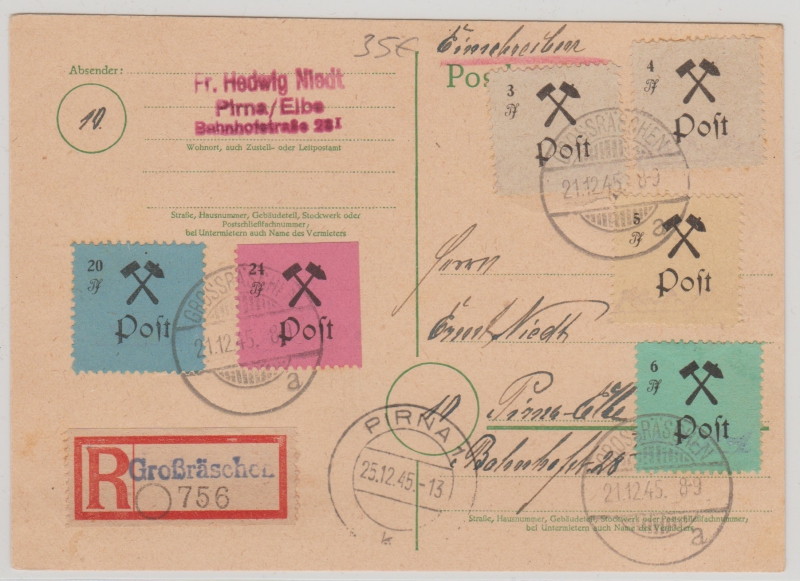 35€
Einschreiben
Absender:
Fr. Hedwig Niedt
Pirna/Elbe
Bahnhofstraße 28 I
10.
Wohnort, auch Zustell- oder Leitpostamt
Straße, Hausnummer, Gebäudeteil, Stockwerk oder
Postschließfachnummer,
bei Untermietern auch Name des Vermieters
Post
3
Pf
Post
4
Pf
Post
GROSSRÄSCHEN
21.12.45. 8-9
a
5
Pf
Post
20
Pf
Post
24
Pf
Post
GROSSRÄSCHEN
21.12.45. 8-
a
Herrn
Ernst Niedt
6
Pf
Post
10 Pirna-Elbe
Bahnhofstr. 28
GROSSRÄSCHEN
21.12.45. 8-9
a
PIRNA
25.12.45.-13
k
R
Großräschen
756
Straße, Hausnummer, Gebäudeteil, Stockwerk oder Postschließfachnummer,
bei Untermietern auch Name des Vermieters